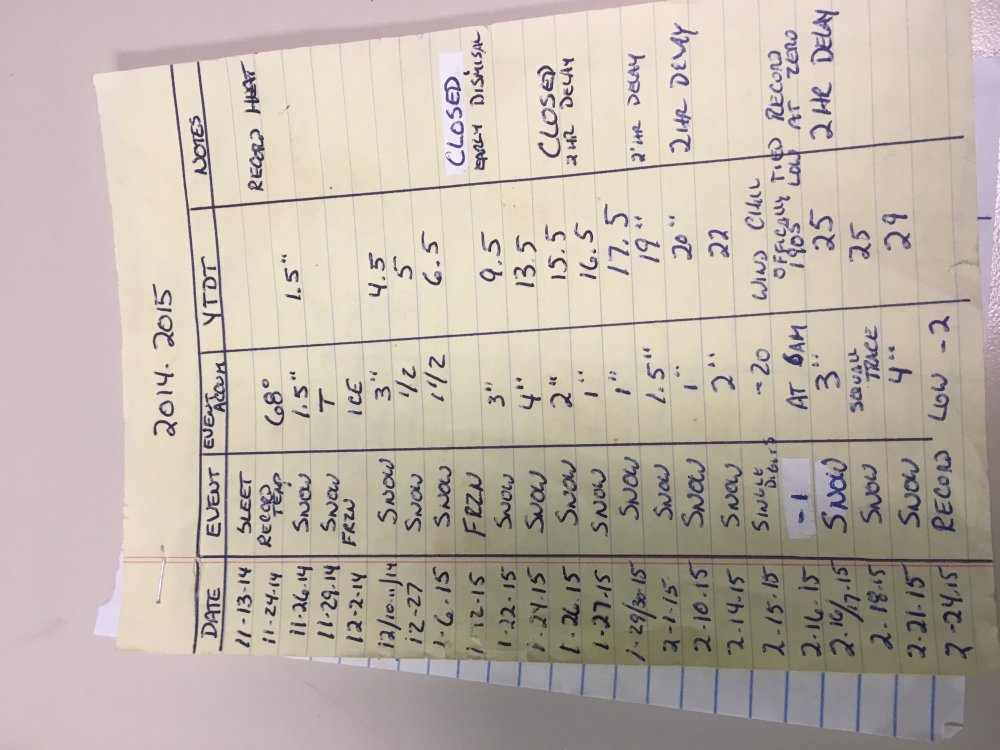 2014. 2015
DATE EVENT EVENT ACCUM YTDT NOTES
11-13-14 SLEET
11-24-14 RECORD TEMP 68° RECORD HEAT
11-26-14 SNOW 1.5" 1.5"
11-29-14 SNOW T
12-2-14 FRZN ICE
12/10-11/14 SNOW 3" 4.5
12-27 SNOW 1/2 5
1-6-15 SNOW 1 1/2 6.5 CLOSED
1-12-15 FRZN EARLY DISMISAL
1-22-15 SNOW 3" 9.5
1-24-15 SNOW 4" 13.5 CLOSED
1-26-15 SNOW 2" 15.5 2 HR DELAY
1-27-15 SNOW 1" 16.5
1-29/30-15 SNOW 1" 17.5 2 HR DELAY
2-1-15 SNOW 1.5" 19" 2 HR DELAY
2-10-15 SNOW 1" 20"
2-14-15 SNOW 2" 22
2-15-15 SINGLE DIGITS -20 WIND CHILL
2-16-15 -1 AT 6AM OFFICIALLY TIED RECORD 1905 LOW AT ZERO
2-16/17-15 SNOW 3" 25 2 HR DELAY
2-18-15 SNOW SQUALL TRACE 25
2-21-15 SNOW 4" 29
2-24-15 RECORD LOW -2